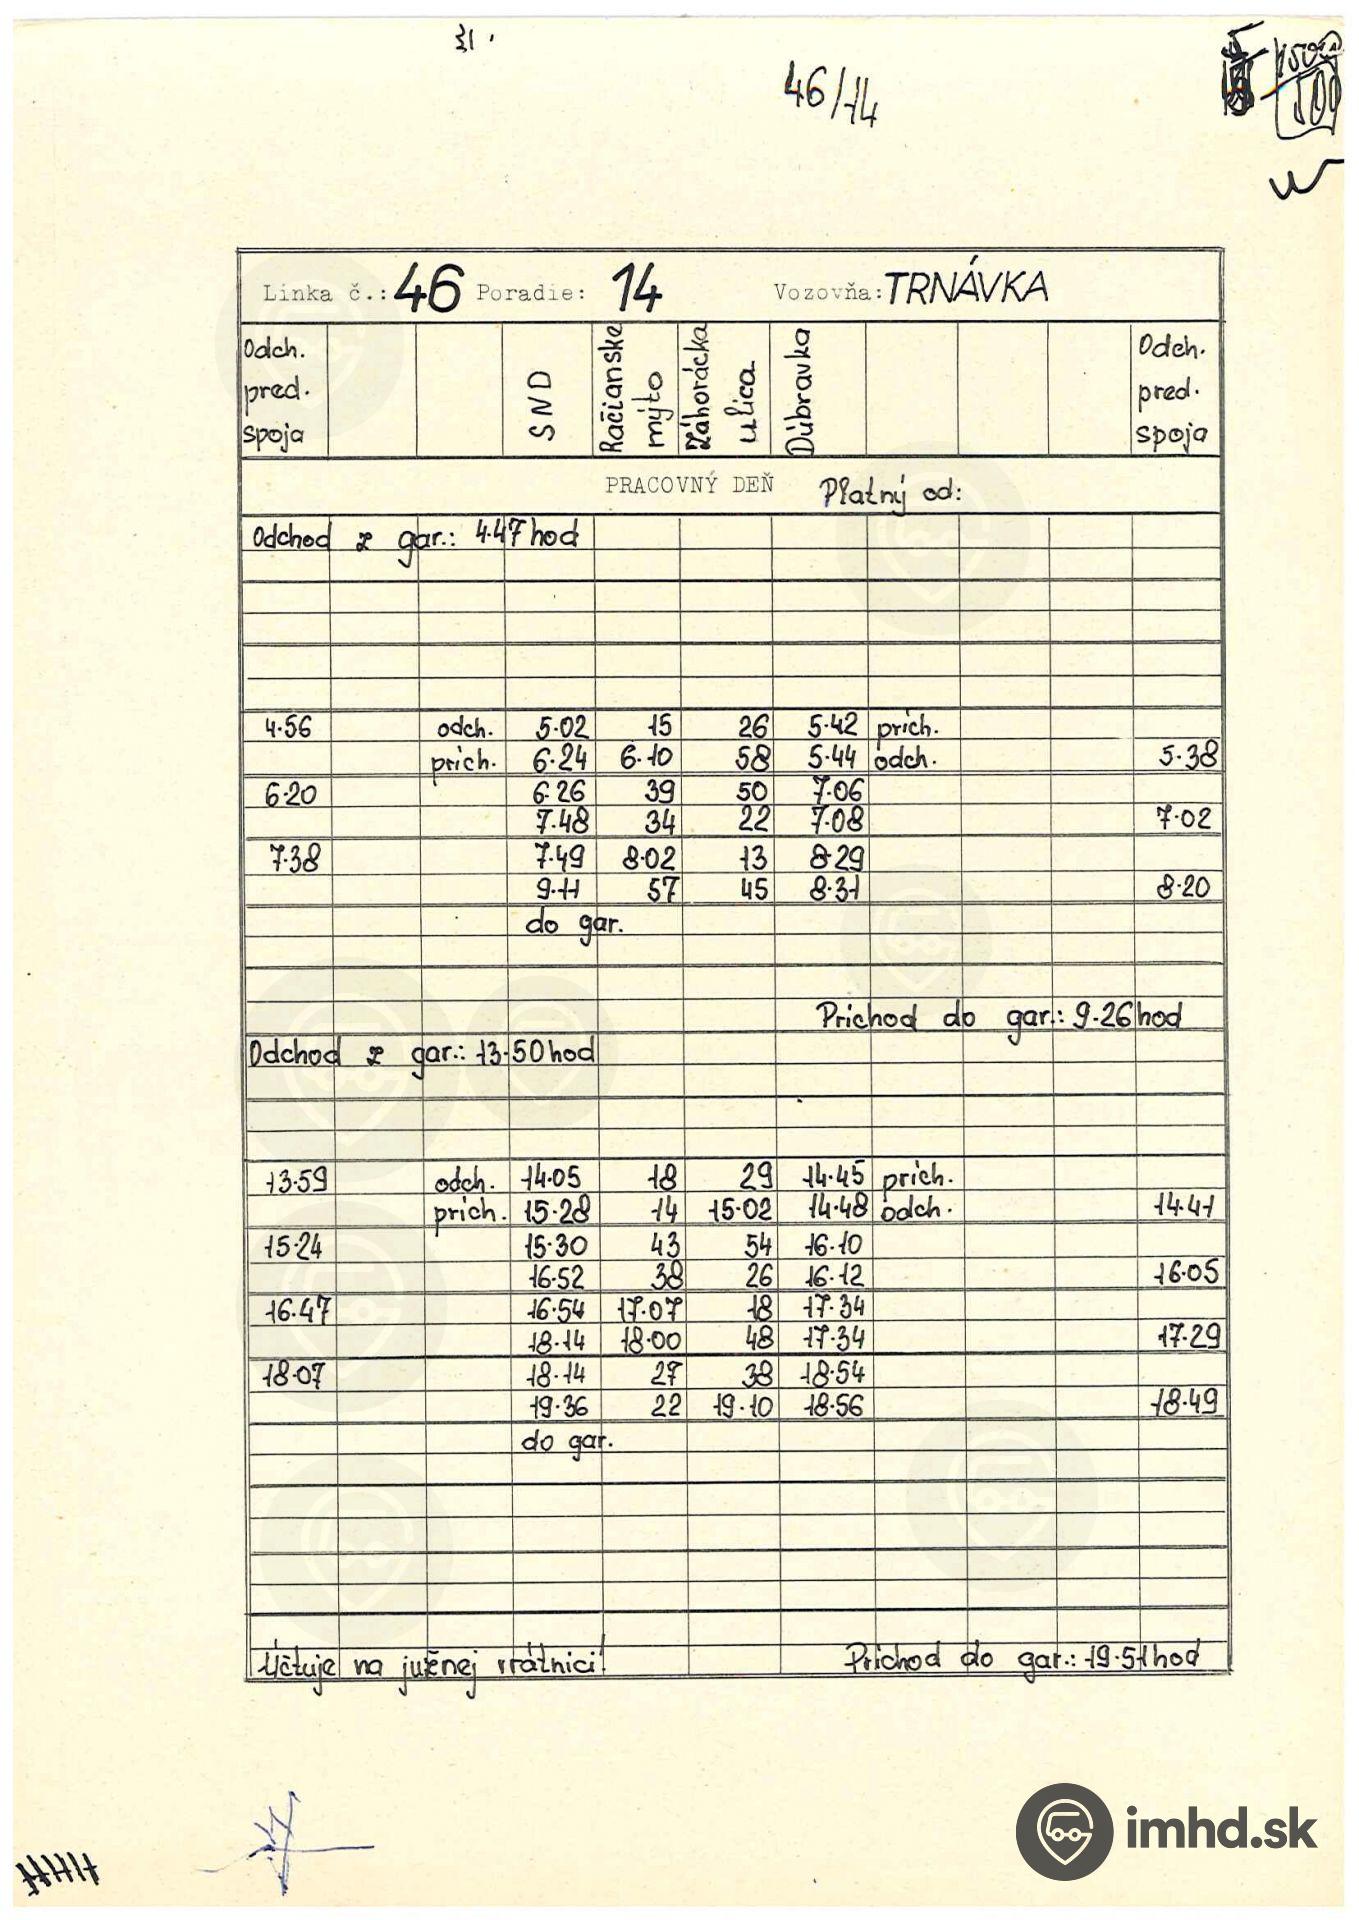 46/14
1500
100
Linka č.: 46 Poradie: 14 Vozovňa: TRNÁVKA
Odch. pred. spoja SND Račianske mýto Záhorácka ulica Dúbravka Odch. pred. spoja
PRACOVNÝ DEŇ Platný od:
Odchod z gar.: 4.47 hod
4.56 odch. 5.02 15 26 5.42 prích.
prích. 6.24 6.10 58 5.44 odch. 5.38
6.20 6.26 39 50 7.06
7.48 34 22 7.08 7.02
7.38 7.49 8.02 13 8.29
9.11 57 45 8.31 8.20
do gar.
Príchod do gar.: 9.26 hod
Odchod z gar.: 13.50 hod
13.59 odch. 14.05 18 29 14.45 prích.
prích. 15.28 14 15.02 14.48 odch. 14.41
15.24 15.30 43 54 16.10
16.52 38 26 16.12 16.05
16.47 16.54 17.07 18 17.34
18.14 18.00 48 17.34 17.29
18.07 18.14 27 38 18.54
19.36 22 19.10 18.56 18.49
do gar.
Účtuje na južnej vrátnici!
Príchod do gar.: 19.51 hod
imhd.sk